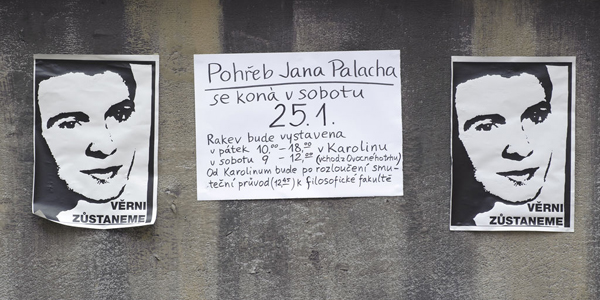 VĚRNI
ZŮSTANEME
Pohřeb Jana Palacha
se koná v sobotu
25.1.
Rakev bude vystavena
v pátek 10.⁰⁰-18.⁰⁰ v Karolinu
v sobotu 9 - 12.⁰⁰ (vchod z Ovocného trhu)
Od Karolinum bude po rozloučení smu-
teční průvod (12⁴⁵) k filosofické fakultě
VĚRNI
ZŮSTANEME